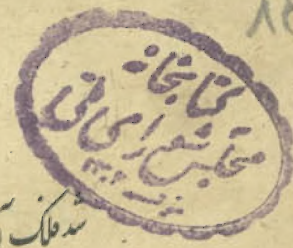 کتابخانه
مجلس شورای ملی
شد فلک